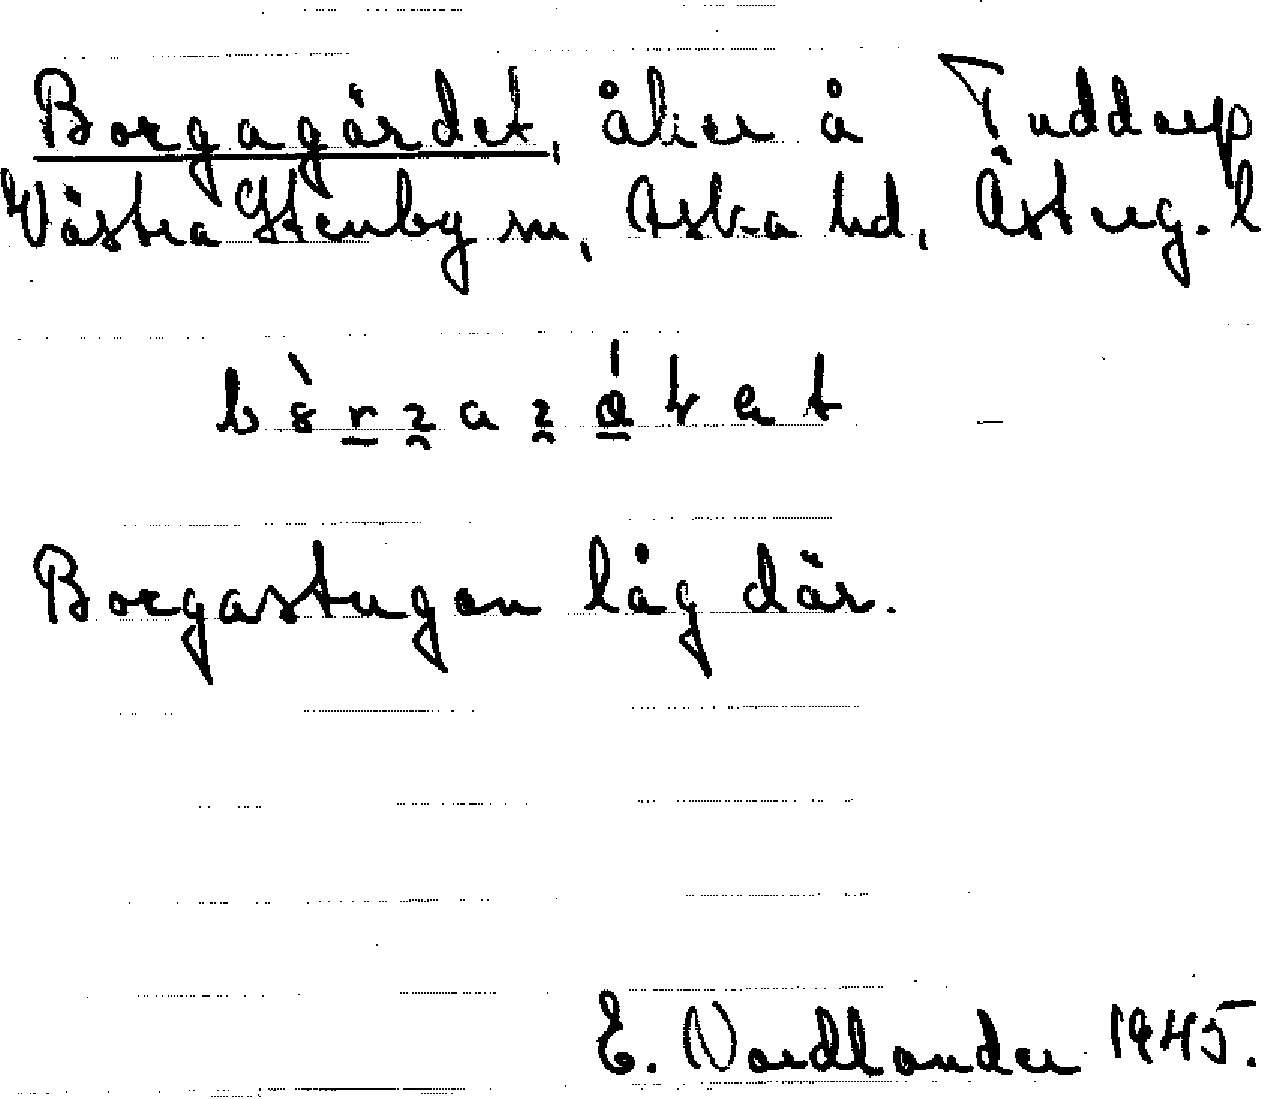 Borgagärdet, åker å Tuddarp
Västra Stenby sn, Aska hd, Österg. l
Borgastugan låg där.
E. Nordlander 1945.